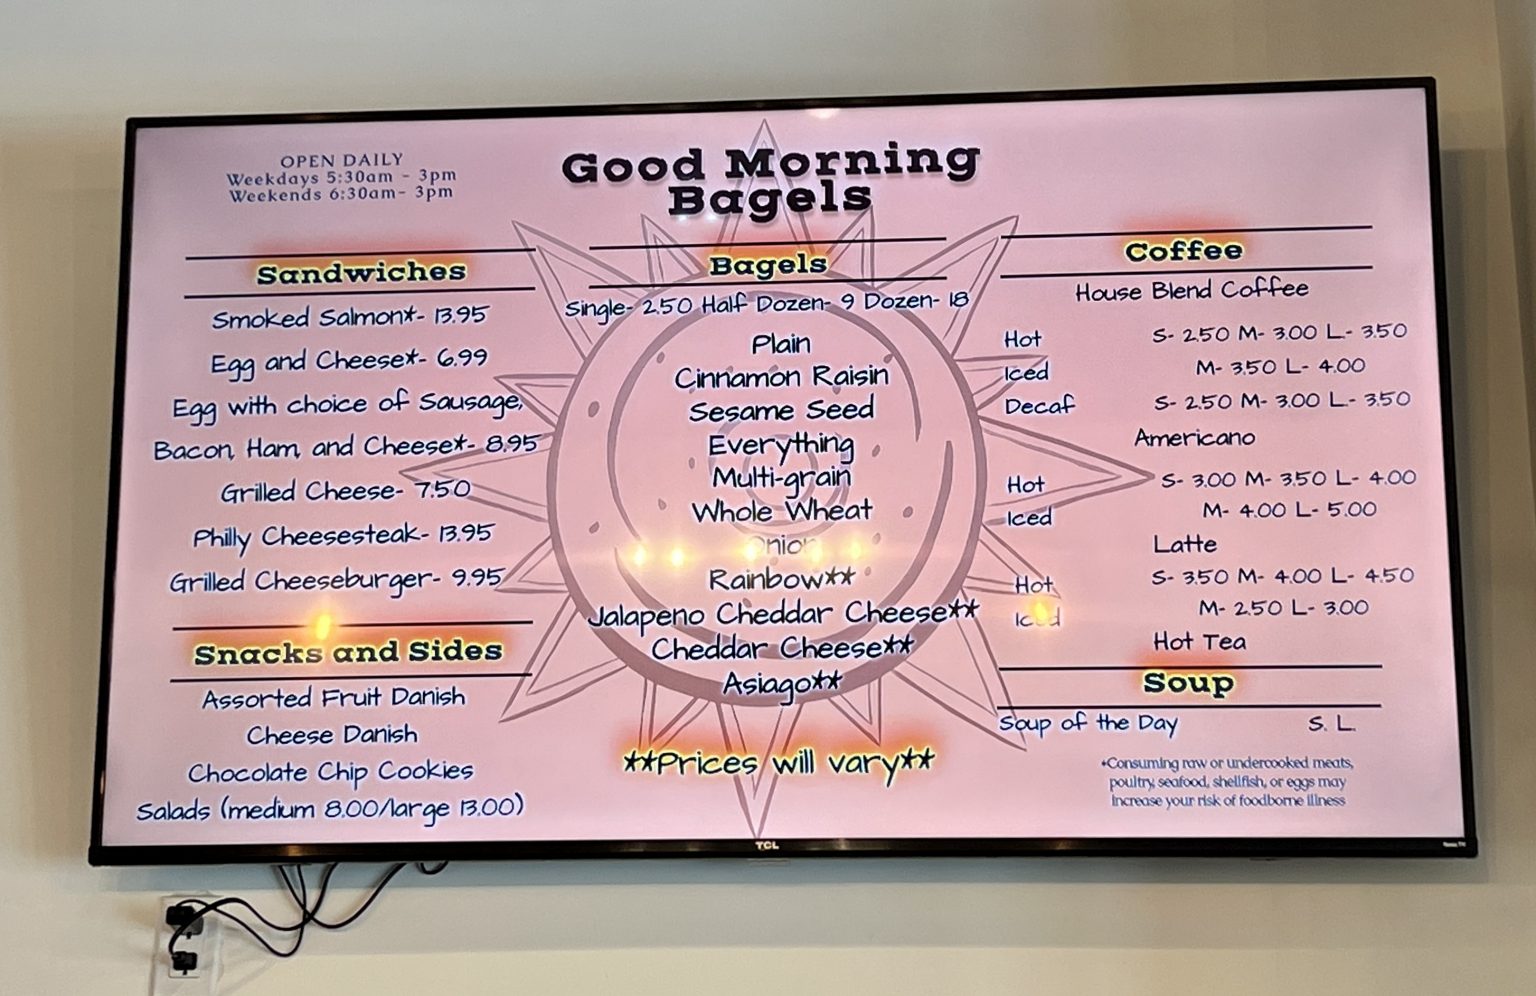 OPEN DAILY
Weekdays 5:30am - 3pm
Weekends 6:30am- 3pm
Good Morning
Bagels
Sandwiches
Smoked Salmon*- 13.95
Egg and Cheese*- 6.99
Egg with choice of Sausage,
Bacon, Ham, and Cheese*- 8.95
Grilled Cheese- 7.50
Philly Cheesesteak- 13.95
Grilled Cheeseburger- 9.95
Snacks and Sides
Assorted Fruit Danish
Cheese Danish
Chocolate Chip Cookies
Salads (medium 8.00/large 13.00)
Bagels
Single- 2.50 Half Dozen- 9 Dozen- 18
Plain
Cinnamon Raisin
Sesame Seed
Everything
Multi-grain
Whole Wheat
Onion
Rainbow**
Jalapeno Cheddar Cheese**
Cheddar Cheese**
Asiago**
**Prices will vary**
Coffee
House Blend Coffee
Hot S- 2.50 M- 3.00 L- 3.50
Iced M- 3.50 L- 4.00
Decaf S- 2.50 M- 3.00 L- 3.50
Americano
Hot S- 3.00 M- 3.50 L- 4.00
Iced M- 4.00 L- 5.00
Latte
Hot S- 3.50 M- 4.00 L- 4.50
Iced M- 2.50 L- 3.00
Hot Tea
Soup
Soup of the Day S. L.
*Consuming raw or undercooked meats,
poultry, seafood, shellfish, or eggs may
increase your risk of foodborne illness
TCL